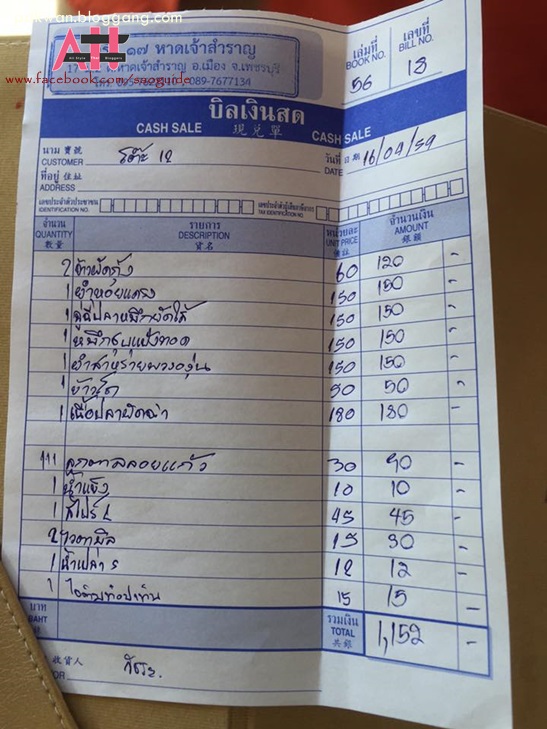 kwan.bloggang.com
Att
All Style Thai Bloggers
๑๗ หาดเจ้าสำราญ
ต.หาดเจ้าสำราญ อ.เมือง จ.เพชรบุรี
089-7677134
www.facebook.com/saoguide
เล่มที่ BOOK NO. 56
เลขที่ BILL NO. 13
บิลเงินสด
CASH SALE 現兑單 CASH SALE
นาม 寳號 CUSTOMER โต๊ะ 12
วันที่ 日期 DATE 16/04/59
ที่อยู่ 住址 ADDRESS
เลขประจำตัวประชาชน IDENTIFICATION NO. เลขประจำตัวผู้เสียภาษีอากร TAX IDENTIFICATION NO.
จำนวน QUANTITY 數量 รายการ DESCRIPTION 貨名 หน่วยละ UNIT PRICE 價錢 จำนวนเงิน AMOUNT 銀額
2 ข้าวผัดกุ้ง 60 120 -
1 ยำหอยแครง 150 150 -
1 ฉู่ฉี่ปลาหมึกยัดไส้ 150 150 -
1 หมึกชุบแป้งทอด 150 150 -
1 ยำสาหร่ายพวงองุ่น 150 150 -
1 50 50 -
1 เนื้อปลาผัดฉ่า 180 180 -
111 ลูกตาลลอยแก้ว 30 90 -
1 น้ำแข็ง 10 10 -
1 สไปร์ท L 45 45 -
2 ไวตามิลค 15 30 -
1 น้ำเปล่า S 12 12 -
1 15 15 -
บาท BAHT รวมเงิน TOTAL 共銀 1,152 -
收貨人